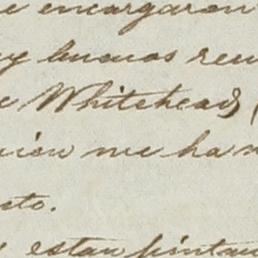 e encargaron
y buenos res
e Whitehead, (
ción me ha
sto.
estan pintan